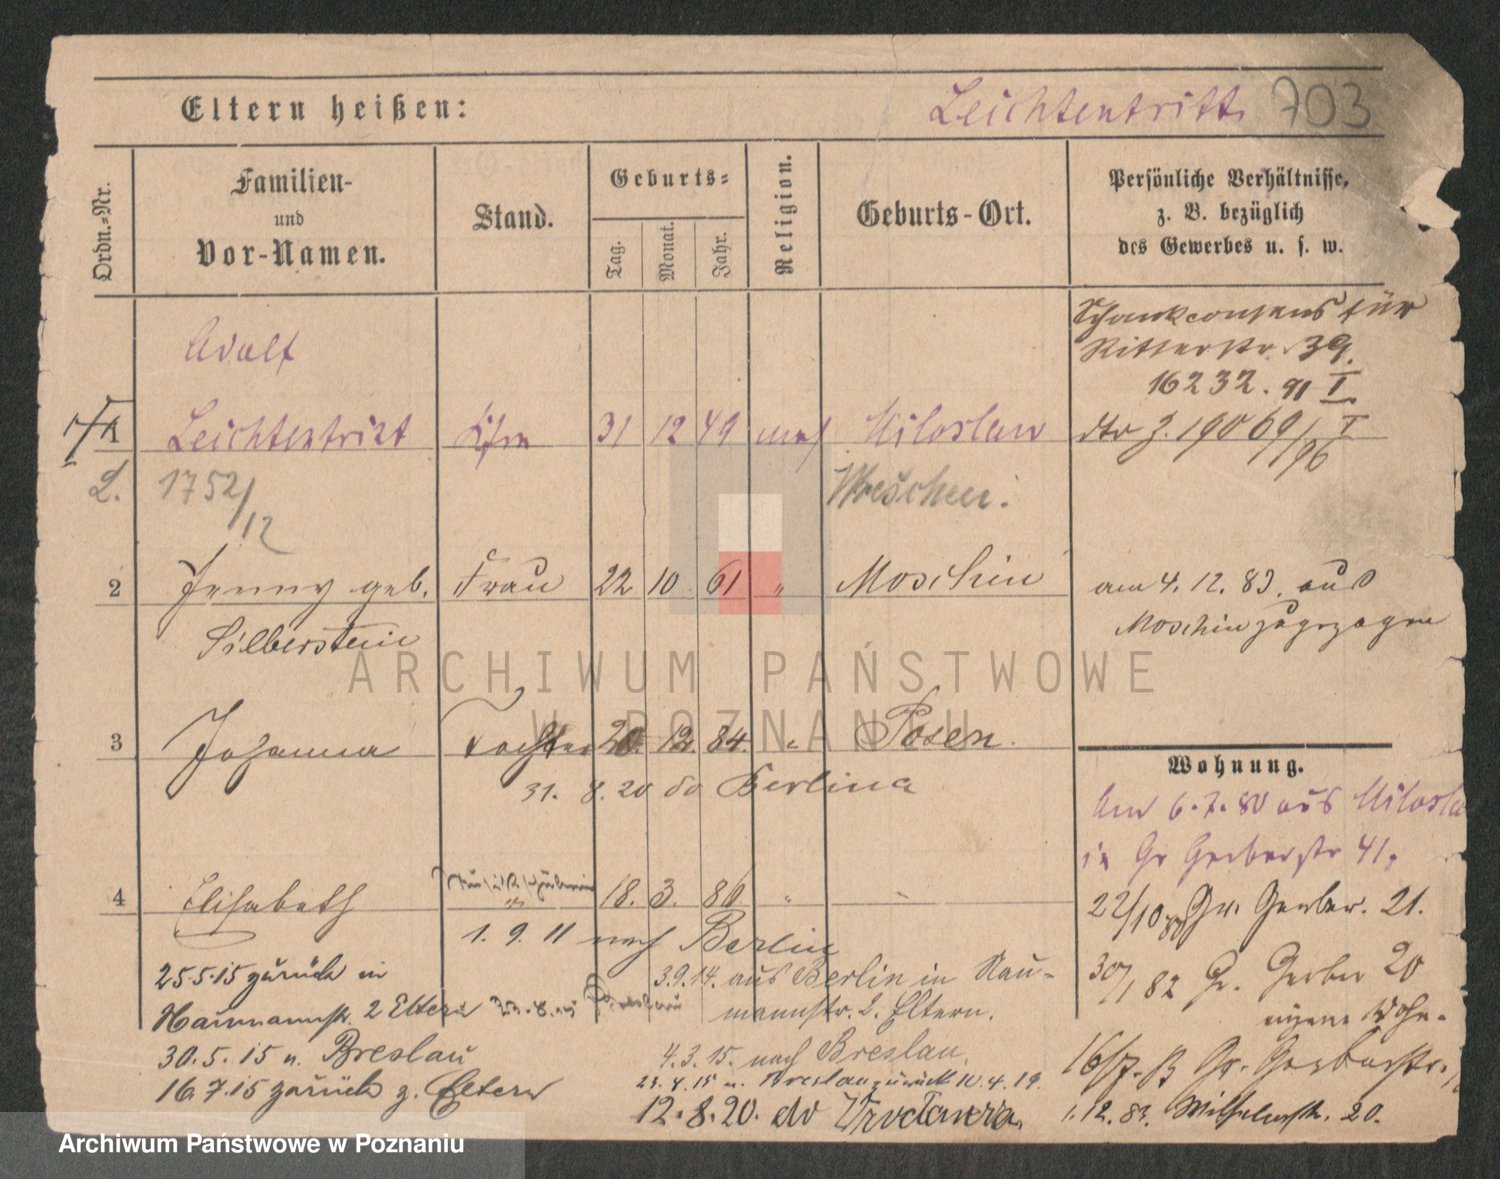 Eltern heißen:
Leichtentritt 703
Ordn.-Nr.
Familien-
und
Vor-Namen.
Stand.
Geburts-
Tag.
Monat.
Jahr.
Religion.
Geburts-Ort.
Persönliche Verhältnisse,
z. B. bezüglich
des Gewerbes u. s. w.
Schankconsens für
Ritterstr. 39.
16232. 91 I
Adolf
Leichtentritt 31 12 49 mos Miloslaw
dto J. 19069/96 I
1752/12
Wreschen.
2 Jenny geb. Frau 22 10 61 " Moschin
Silberstein
am 4. 12. 83. aus
Moschin zugezogen
3 Johanna Tochter 20. 12 84 " Posen.
31. 8. 20 do Berlina
Wohnung.
Am 6.7.80 aus Miloslaw
in Gr Gerberstr 41.
22/10 80 Gr. Gerber. 21.
30/1 82 Gr. Gerber 20
eigene Wohn-
16/7. 83 Gr. Gerberstr.
1.12.83. Wilhelmstr. 20.
4 Elisabeth 18. 3. 86 " "
1. 9. 11 nach Berlin
25.5.15 zurück in
Naumannstr. 2 Eltern 23.8.15 Breslau
30.5.15 n. Breslau
16.7.15 zurück z. Eltern
3.9.14. aus Berlin in Nau-
mannstr. 2. Eltern.
4.3.15. nach Breslau.
23.8.15 n. Breslau zurück 10.4.19.
12.8.20. do Wrocławia
ARCHIWUM PAŃSTWOWE
W POZNANIU
Archiwum Państwowe w Poznaniu